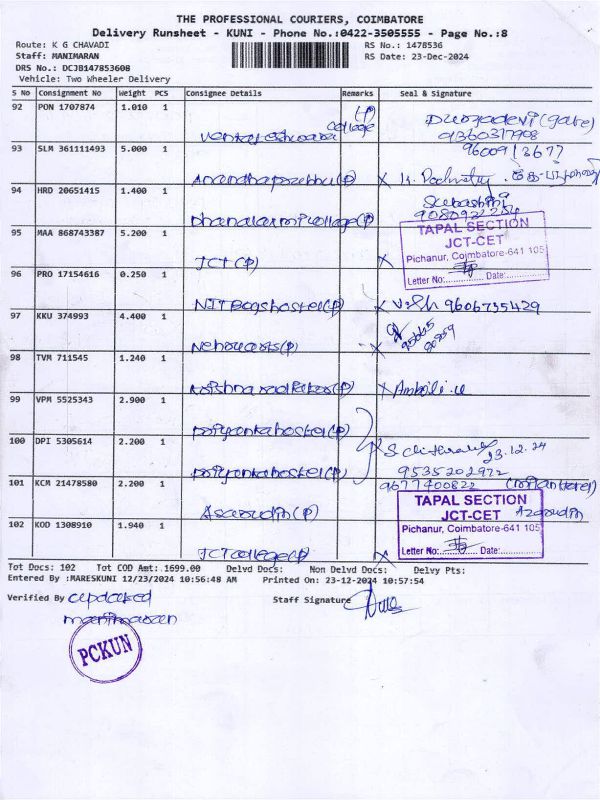 THE PROFESSIONAL COURIERS, COIMBATORE
Delivery Runsheet - KUNI - Phone No.:0422-3505555 - Page No.:8
Route: K G CHAVADI
RS No.: 1478536
Staff: MANIMARAN
RS Date: 23-Dec-2024
DRS No.: DCJB147853608
Vehicle: Two Wheeler Delivery
S No Consignment No Weight PCS Consignee Details Remarks Seal & Signature
92 PON 1707874 1.010 1
(P)
college
Durgadevi (gate)
9360317908
93 SLM 361111493 5.000 1
9600913677
Anandhaprabhu(P) X
94 HRD 20651415 1.400 1
Subashini
9080922254
Dhanalaxmi college(P)
TAPAL SECTION
JCT-CET
Pichanur, Coimbatore-641 105
Letter No: Date:
95 MAA 868743387 5.200 1
JCT (P) X
96 PRO 17154616 0.250 1
NIT Boys hostel(P) X 9606735429
97 KKU 374993 4.400 1
95665
90859
Nehru arts(P) X
98 TVM 711545 1.240 1
Krishna radhakas(P) X Ambili.u
99 VPM 5525343 2.900 1
Priyanka hostel(P)
100 DPI 5305614 2.200 1
23.12.24
Priyanka hostel(P)
9535202972
101 KCM 21478580 2.200 1
9677400822
Asarudin(P)
Azarudin
TAPAL SECTION
JCT-CET
Pichanur, Coimbatore-641 105
Letter No: Date:
102 KOD 1308910 1.940 1
JCT college(P) X
Tot Docs: 102 Tot COD Amt: 1699.00 Delvd Docs: Non Delvd Docs: Delvy Pts:
Entered By :MARESKUNI 12/23/2024 10:56:48 AM Printed On: 23-12-2024 10:57:54
Verified By updated
Staff Signature
manimaran
PCKUN